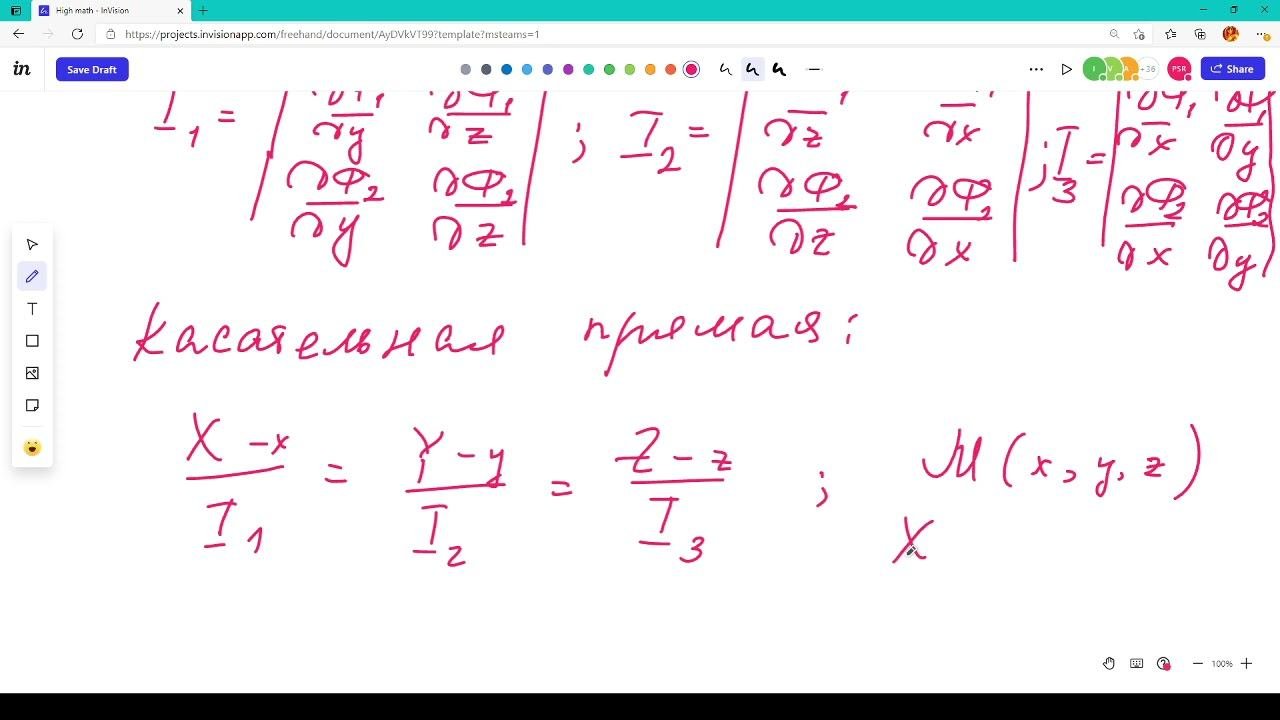 High math - InVision
https://projects.invisionapp.com/freehand/document/AyDVkVT99?template?msteams=1
in Save Draft I V A +36 PSR Share
I₁ = | ∂Φ₁/∂y ∂Φ₁/∂z | ; I₂ = | ∂z ∂x | ; I₃ = | ∂Φ₁/∂x ∂Φ₁/∂y |
| ∂Φ₂/∂y ∂Φ₂/∂z | | ∂Φ₂/∂z ∂Φ₂/∂x | | ∂Φ₂/∂x ∂Φ₂/∂y |
Касательная прямая:
(X - x)/I₁ = (Y - y)/I₂ = (Z - z)/I₃ ; M(x, y, z)
X
T
100%